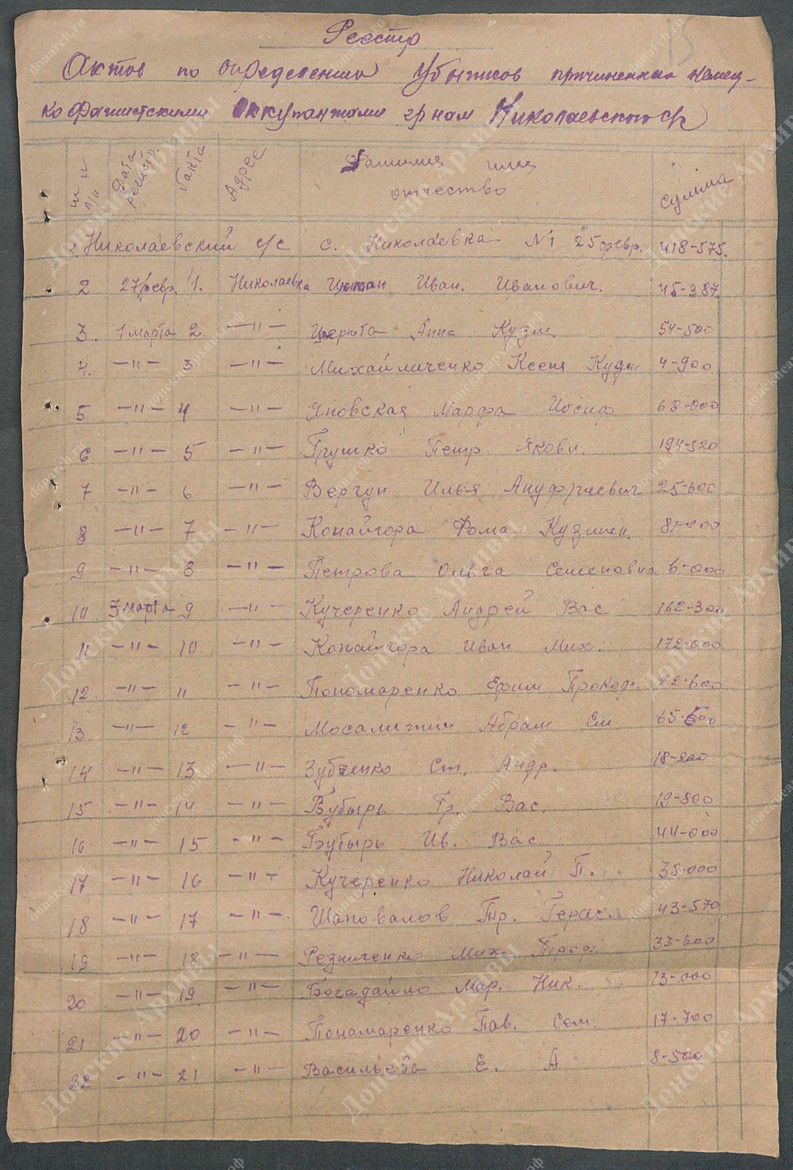 15
Реестр
Актов по определению убытков причиненных немец-
ко фашистскими оккупантами гр-нам Николаевского с/с
№ п/п Дата регистр. № акта Адрес Фамилия имя отчество сумма
1 Николаевский с/с с. Николаевка №1 25 февр. 418-575.
2 27 февр. 1. Николаевка Иван. Иванович. 45-387
3. 1 марта 2. —"— Анна Кузм. 54-500
4. —"— 3 —"— Михайличенко Ксения Кузм 4-900
5 —"— 4 —"— Яновская Марфа Иосиф 68-000
6 —"— 5 —"— Грушко Петр Яковл. 194-520
7 —"— 6 —"— Вергун Илья Ануфриевич 25-600
8 —"— 7 —"— Конайгора Фома Кузмич 81-000
9 —"— 8 —"— Петрова Ольга Семеновна 6-000
10 3 марта 9 —"— Кучеренко Андрей Вас 162-300
11 —"— 10 —"— Конайгора Иван Мих. 172-000
12 —"— 11 —"— Пономаренко Ефим Прокоф. 72-600
13 —"— 12 —"— Абрам Ем 65-600
14 —"— 13 —"— Зубенко Ст. Андр. 18-200
15 —"— 14 —"— Бубырь Гр. Вас. 19-800
16 —"— 15 —"— Бубырь Ив. Вас. 44-000
17 —"— 16 —"— Кучеренко Николай П. 38-000
18 —"— 17 —"— Шаповалов Гр. Герас. 43-570
19 —"— 18 —"— Резниченко Мих. Троф. 33-600
20 —"— 19 —"— Богадайло Мар. Ник. 13-000
21 —"— 20 —"— Пономаренко Пав. Сем. 17-700
22 —"— 21 —"— Васильева Е. А 8-500